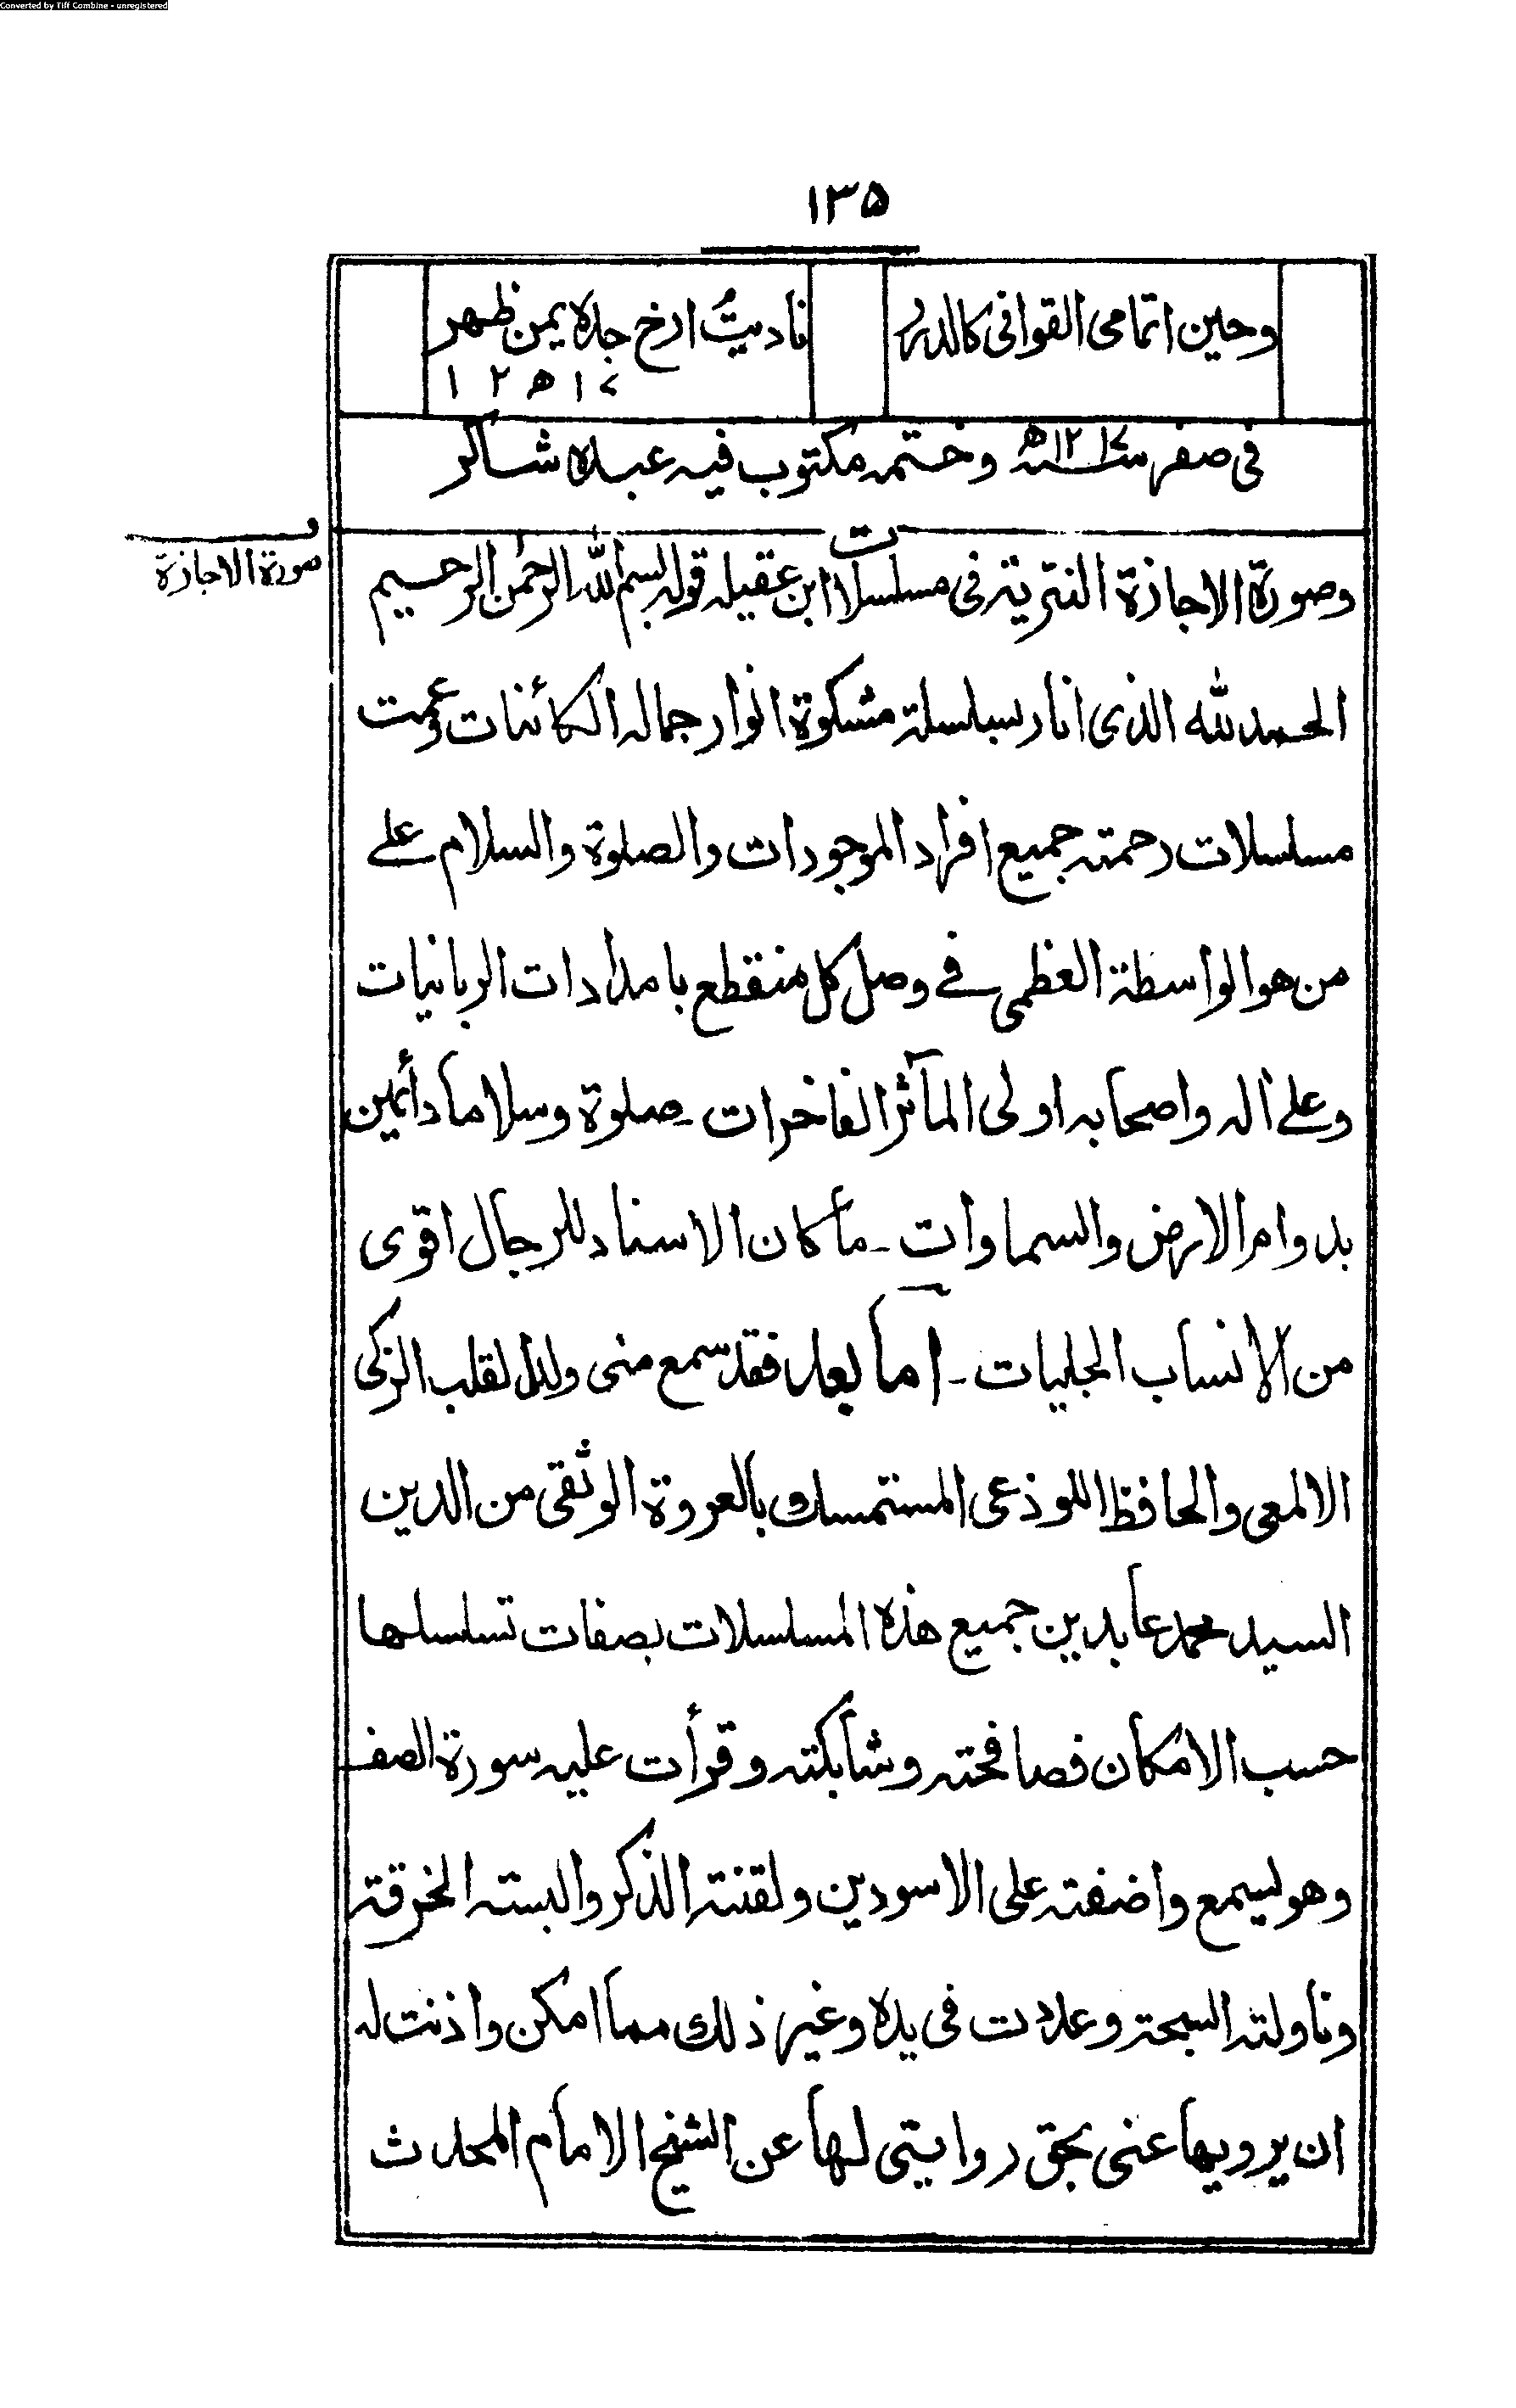 Converted by Tiff Combine - unregistered
١٣٥
وحين اتمامى القوافى كالدرر
ناديتُ ارخ جده يمن ظهر
١٢١٧ھ
فى صفر سنه ١٢١٧ھ وختمه مكتوب فيه عبده شاكر
صورة الاجازة
وصورة الاجازة النثرية فى مسلسلات ابن عقيله قوله بسم الله الرحمن الرحيم
الحمد لله الذى انار بسلسلة مشكوة انوار جماله الكائنات وعمت
مسلسلات رحمته جميع افراد الموجودات والصلوة والسلام على
من هو الواسطة العظمى فى وصل كل منقطع بامدادات الربانيات
وعلى اله واصحابه اولى المآثر الفاخرات - صلوة وسلاما دأئمين
بدوام الارض والسماوات - ما كان الاسناد للرجال اقوى
من الانساب الجليات - اما بعد فقد سمع منى ولدالقلب الزكى
الالمعى والحافظ اللوذعى المستمسك بالعروة الوثقى من الدين
السيد محمد عابدين جميع هذه المسلسلات بصفات تسلسلها
حسب الامكان فصافحته وشابكته وقرأت عليه سورة الصف
وهو يسمع واضفته على الاسودين ولقنته الذكر والبسته الخرقة
وناولته السبحة وعددت فى يده وغير ذلك مما امكن واذنت له
ان يرويها عنى بحق روايتى لها عن الشيخ الامام المحدث